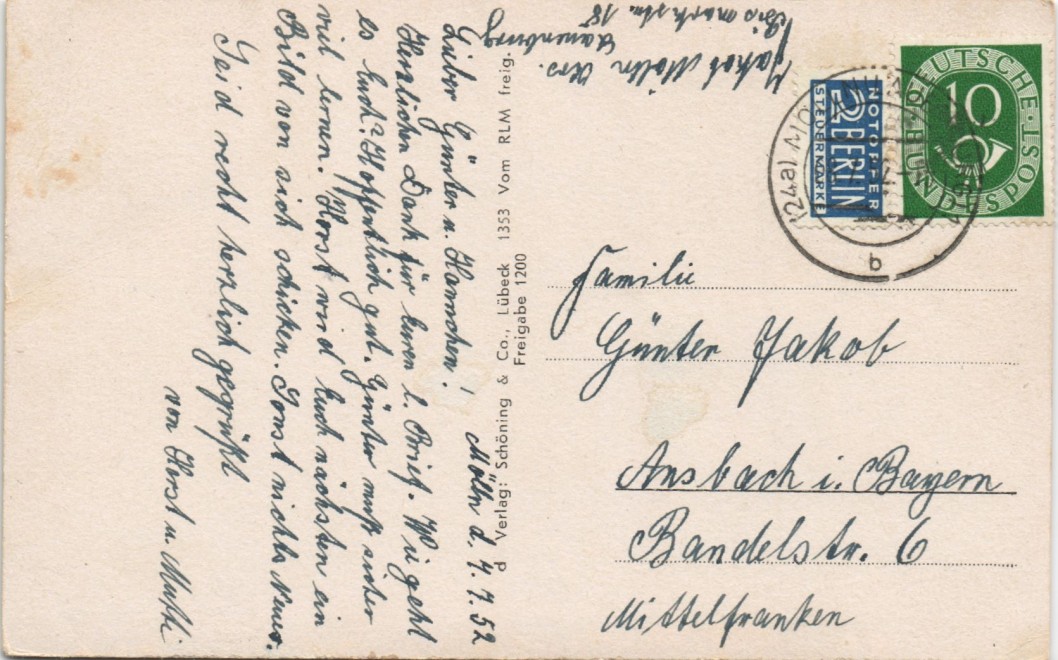 Jakob Mölln Krs.
Lauenburg
Bismarckstr. 18
Mölln d. 4.7.52
Lieber Günter u. Hannchen!
Herzlichen Dank für euren l. Brief. Wie geht
es Euch? Hoffentlich gut. Günter muß sicher
viel lernen. Horst wird Euch nächstens ein
Bild von sich schicken. Sonst nichts Neues.
Seid recht herzlich gegrüßt
von Horst u. Mutti
d Verlag: Schöning & Co., Lübeck 1353 Vom RLM freig.
Freigabe 1200
NOTOPFER
2 BERLIN
STEUERMARKE
DEUTSCHE BUNDESPOST
10
(24a) MÖLLN
b
Familie
Günter Jakob
Ansbach i. Bayern
Bandelstr. 6
Mittelfranken